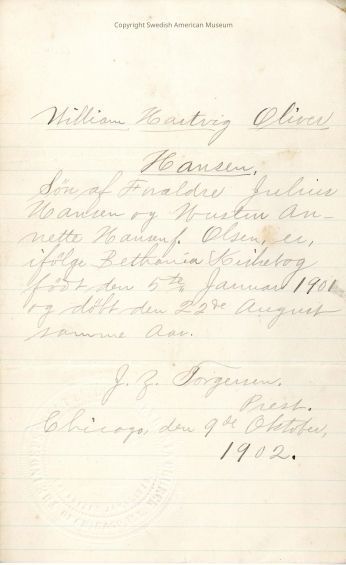 Copyright Swedish American Museum
William Hartvig Oliver
Hansen,
Søn af Forældre Julius
Hansen og Kustin An-
nette Hansen f. Olsen, er,
ifølge Bethania Kirkebog
født den 5te Januar 1901
og døbt den 22de August
samme Aar.
J. Z. Torgersen.
Prest.
Chicago, den 9de Oktober,
1902.